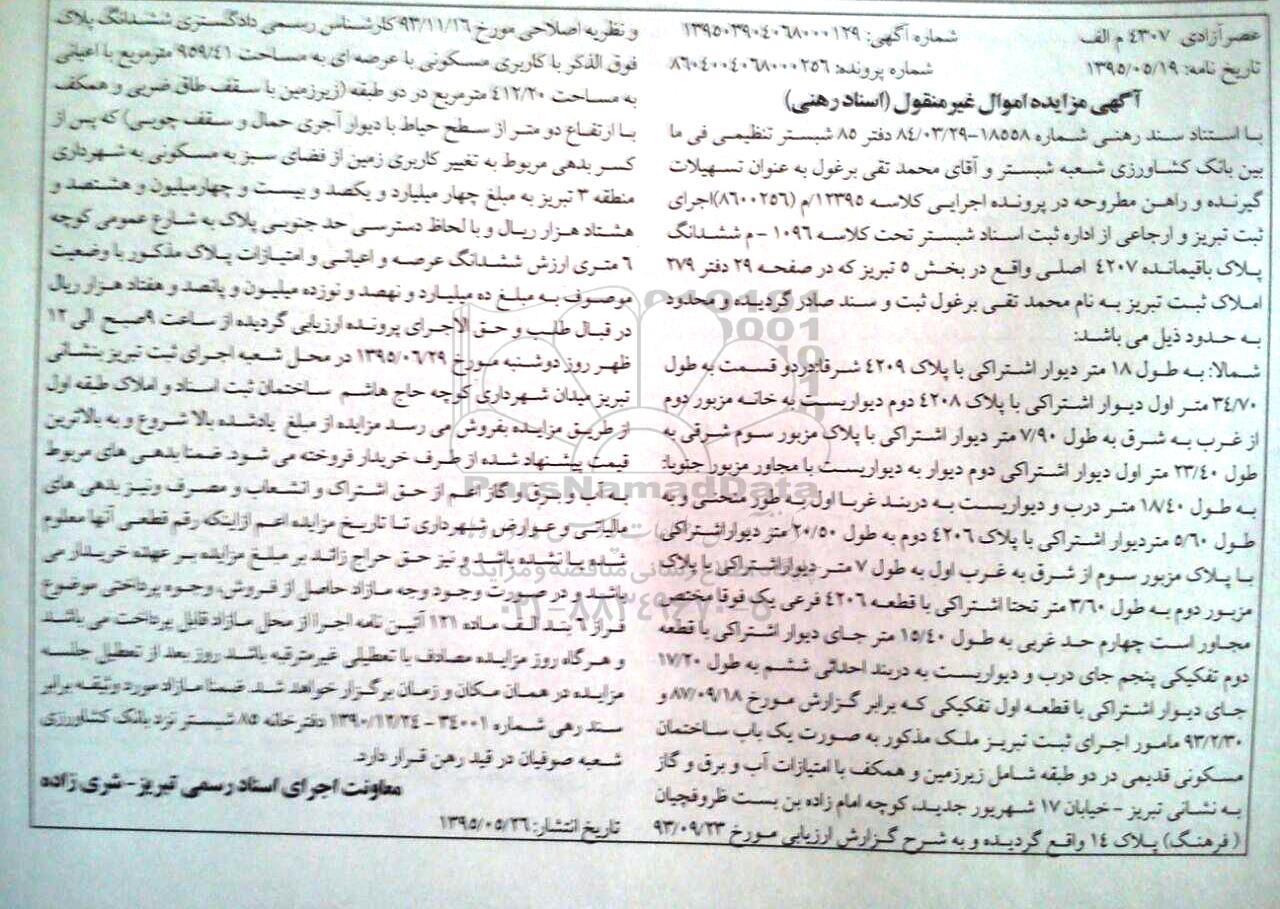 عصر آزادی ۴۳۰۷ م الف
شماره آگهی: ۱۳۹۵۰۳۹۰۴۰۶۸۰۰۰۱۲۹
تاریخ نامه: ۱۳۹۵/۰۵/۱۹
شماره پرونده: ۸۶۰۴۰۰۴۰۶۸۰۰۰۲۵۶
آگهی مزایده اموال غیر منقول (اسناد رهنی)
با استناد سند رهنی شماره ۱۸۵۵۸-۸۴/۰۳/۲۹ دفتر ۸۵ شبستر تنظیمی فی ما
بین بانک کشاورزی شعبه شبستر و آقای محمد تقی برغول به عنوان تسهیلات
گیرنده و راهن مطروحه در پرونده اجرایی کلاسه ۱۲۳۹۵/م (۸۶۰۰۲۵۶)اجرای
ثبت تبریز و ارجاعی از اداره ثبت اسناد شبستر تحت کلاسه ۱۰۹۶ - م ششدانگ
پلاک باقیمانده ۴۲۰۷ اصلی واقع در بخش ۵ تبریز که در صفحه ۲۹ دفتر ۲۷۹
املاک ثبت تبریز به نام محمد تقی برغول ثبت و سند صادر گردیده و محدود
به حدود ذیل می باشد:
شمالا: به طول ۱۸ متر دیوار اشتراکی با پلاک ۴۲۰۹ شرقا:در دو قسمت به طول
۳۴/۷۰ متر اول دیوار اشتراکی با پلاک ۴۲۰۸ دوم دیواریست به خانه مزبور دوم
از غرب به شرق به طول ۷/۹۰ متر دیوار اشتراکی با پلاک مزبور سوم شرقی به
طول ۲۳/۴۰ متر اول دیوار اشتراکی دوم دیوار به دیواریست با مجاور مزبور جنوبا:
به طول ۱۸/۴۰ متر درب و دیواریست به دربند غربا اول به طور منحنی و به
طول ۵/۶۰ متردیوار اشتراکی با پلاک ۴۲۰۶ دوم به طول ۲۰/۵۰ متر دیواراشتراکی
با پلاک مزبور سوم از شرق به غرب اول به طول ۷ متر دیواراشتراکی با پلاک
مزبور دوم به طول ۳/۶۰ متر تحتا اشتراکی با قطعه ۴۲۰۶ فرعی یک فوقا مختص
مجاور است چهارم حد غربی به طول ۱۵/۴۰ متر جای دیوار اشتراکی با قطعه
دوم تفکیکی پنجم جای درب و دیواریست به دربند احداثی ششم به طول ۱۷/۲۰
جای دیوار اشتراکی با قطعه اول تفکیکی که برابر گزارش مورخ ۸۷/۰۹/۱۸ و
۹۳/۲/۳۰ مامور اجرای ثبت تبریز ملک مذکور به صورت یک باب ساختمان
مسکونی قدیمی در دو طبقه شامل زیرزمین و همکف با امتیازات آب و برق و گاز
به نشانی تبریز - خیابان ۱۷ شهریور جدید، کوچه امام زاده بن بست ظروفچیان
(فرهنگ) پلاک ۱۴ واقع گردیده و به شرح گزارش ارزیابی مورخ ۹۳/۰۹/۲۳
و نظریه اصلاحی مورخ ۹۳/۱۱/۱۶ کارشناس رسمی دادگستری ششدانگ پلاک
فوق الذکر با کاربری مسکونی با عرصه ای به مساحت ۹۵۹/۴۱ مترمربع با اعیانی
به مساحت ۴۱۲/۲۰ مترمربع در دو طبقه (زیرزمین با سقف طاق ضربی و همکف
با ارتفاع دو متر از سطح حیاط با دیوار آجری حمال و سقف چوبی) که پس از
کسر بدهی مربوط به تغییر کاربری زمین از فضای سبز به مسکونی به شهرداری
منطقه ۳ تبریز به مبلغ چهار میلیارد و یکصد و بیست و چهارمیلیون و هشتصد و
هشتاد هزار ریال و با لحاظ دسترسی حد جنوبی پلاک به شارع عمومی کوچه
۶ متری ارزش ششدانگ عرصه و اعیانی و امتیازات پلاک مذکور با وضعیت
موصوف به مبلغ ده میلیارد و نهصد و نوزده میلیون و پانصد و هفتاد هزار ریال
در قبال طلب و حق الاجرای پرونده ارزیابی گردیده از ساعت ۹صبح الی ۱۲
ظهر روز دوشنبه مورخ ۱۳۹۵/۰۶/۲۹ در محل شعبه اجرای ثبت تبریز بنشانی
تبریز میدان شهرداری کوچه حاج هاشم ساختمان ثبت اسناد و املاک طبقه اول
از طریق مزایده بفروش می رسد مزایده از مبلغ یادشده بالا شروع و به بالاترین
قیمت پیشنهاد شده از طرف خریدار فروخته می شود. ضمنا بدهی های مربوط
به آب و برق و گاز اعم از حق اشتراک و انشعاب و مصرف ونیز بدهی های
مالیاتی و عوارض شهرداری تا تاریخ مزایده اعم ازاینکه رقم قطعی آنها معلوم
شده یا نشده باشد و نیز حق حراج زائد بر مبلغ مزایده بر عهده خریدار می
باشد و در صورت وجود وجه مازاد حاصل از فروش، وجوه پرداختی موضوع
فراز ۶ بند الف ماده ۱۲۱ آئین نامه اجرا از محل مازاد قابل پرداخت می باشد
و هرگاه روز مزایده مصادف با تعطیلی غیرمترقبه باشد روز بعد از تعطیل جلسه
مزایده در همان مکان و زمان برگزار خواهد شد. ضمنا مازاد مورد وثیقه برابر
سند رهی شماره ۳۴۰۰۱ - ۱۳۹۰/۱۲/۲۴ دفترخانه ۸۵ شبستر نزد بانک کشاورزی
شعبه صوفیان در قید رهن قرار دارد.
معاونت اجرای اسناد رسمی تبریز - شری زاده
تاریخ انتشار: ۱۳۹۵/۰۵/۲۶
ParsNamadData
۰۲۱-۸۸۳۴۹۶۷۰-۵